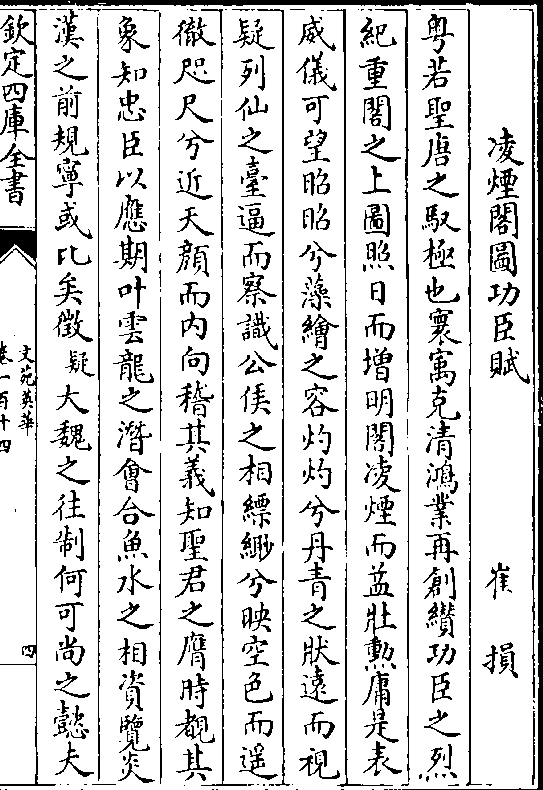 凌煙閣圖功臣賦　崔損
粤若聖唐之馭極也寰㝢克清鴻業再創纉功臣之烈
紀重閣之上圖照日而增明閣凌煙而益壯勲庸是表
威儀可望昭昭兮藻繪之容灼灼兮丹青之狀遠而視
疑列仙之臺逼而察識公侯之相縹緲兮映空色而遥
徹咫尺兮近天顔而内向稽其義知聖君之膺時覩其
象知忠臣以應期叶雲龍之潛會合魚水之相資覽炎
漢之前規寧或比矣徵疑大魏之往制何可尚之懿夫
欽定四庫全書
文苑英華
卷一百十四
四